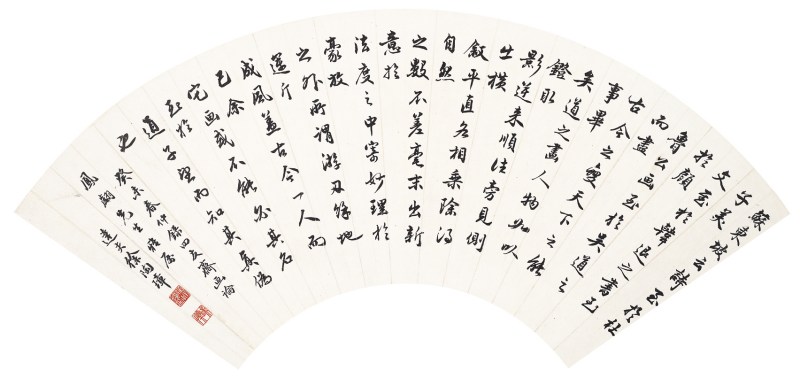 蘇東坡云詩至於杜
子美
文至於韓退之書至
於顏
魯公畫至於吳道之
而盡
古今之變天下之能
事畢
矣道之畫人物如以
鐙取
影逆來順往旁見側
出橫
斜平直各相乘除得
自然
之數不差毫末出新
意於
法度之中寄妙理於
豪放
之外所謂游刃餘地
運斤
成風蓋古今一人而
已余
它畫或不能必其名
至於
道子望而知其真偽
也
癸未春仲錄四友齋畫論
鳳翩先生雅屬
徐